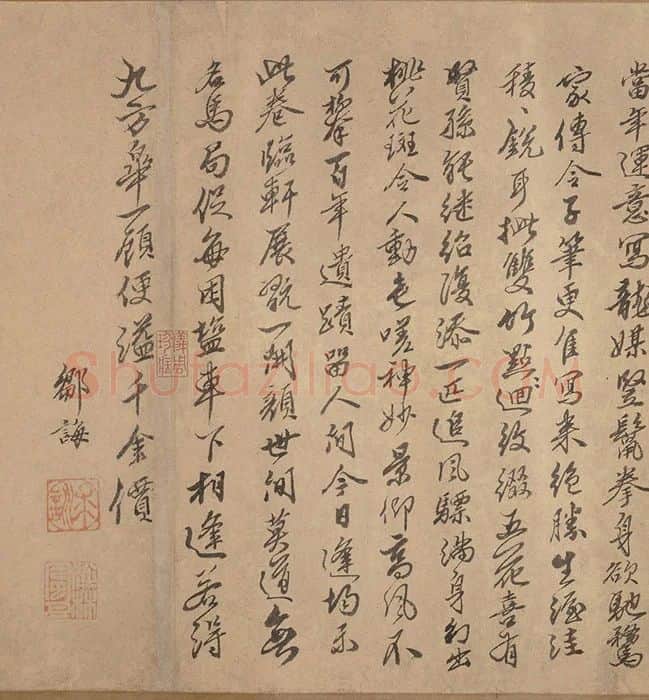 當年運意寫龍媒竪鬣拳身欲馳騖
家傳令子筆更佳寫來絶勝生渥洼
稜〻銳耳批雙竹點迴紋綴五花喜有
賢孫能継紹復添一匹追風驃滿身幻出
桃花斑令人動色嗟神妙景仰高風不
可攀百年遺蹟留人间今日逢均示
此卷臨軒展翫一開顔世间莫道無
名馬局促每困鹽車下相逢若得
九方臯一顧便溢千金價
鄒誨